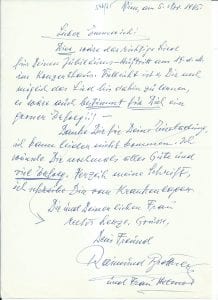 Wien, am 5. Okt. 1985
Lieber
Hier wäre das richtige Lied
für Deinen Jubiläums-Auftritt am 15. d. M.
im Konzerthaus. Vielleicht ist es Dir noch
möglich das Lied bis dahin zu lernen,
es wäre auch bestimmt für Dich ein
grosser Erfolg!
Danke Dir für Deine Einladung,
ich kann leider nicht kommen. Ich
wünsche Dir nochmals alles Gute und
viel Erfolg. Verzeih meine Schrift,
ich schreibe Dir vom Krankenlager.
Dir und Deiner lieben Frau
Grüsse,
Dein Freund
und Frau